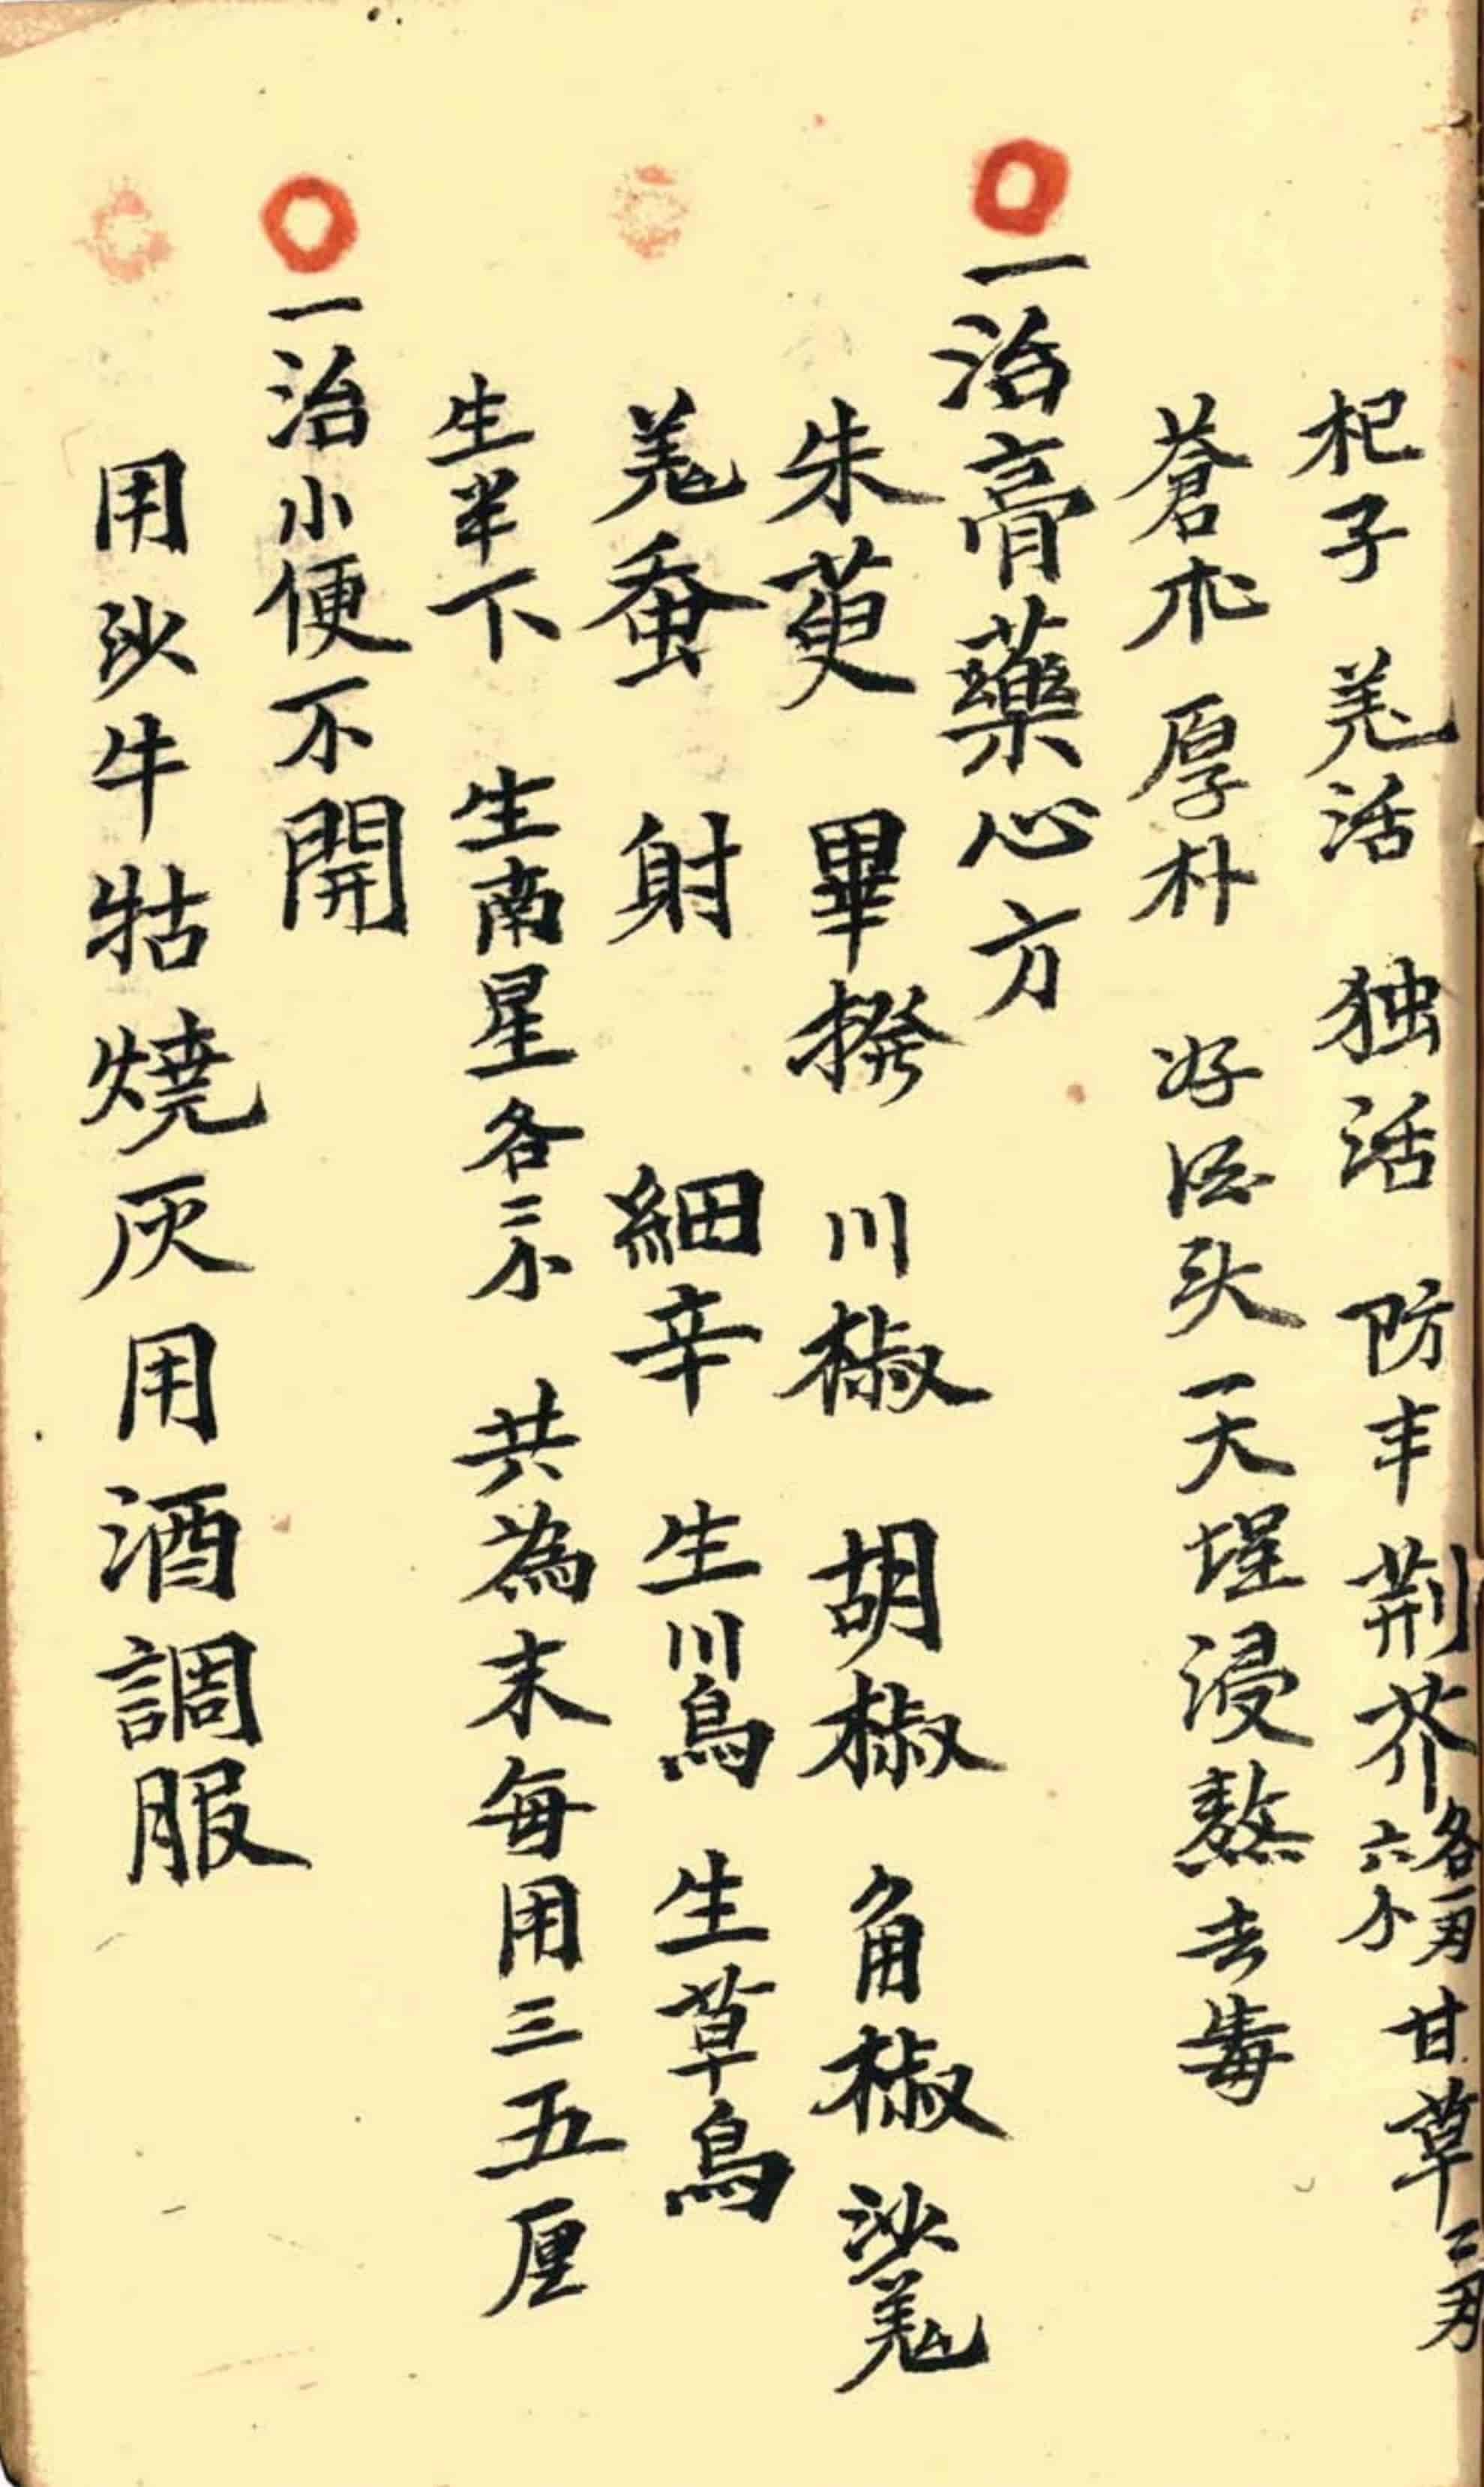 杞子 羌活 独活 防丰 荆芥 各一刄 六小 甘草 二刄
蒼朮 厚朴 好酒头一天埕浸熬去毒
一治膏藥心方
朱萸 畢撥 川椒 胡椒 角椒 沙羌
羌蚕 射 細辛 生川烏 生草烏
生半下 生南星各二小 共為末每用三五厘
一治小便不開
用沙牛牯燒灰用酒調服